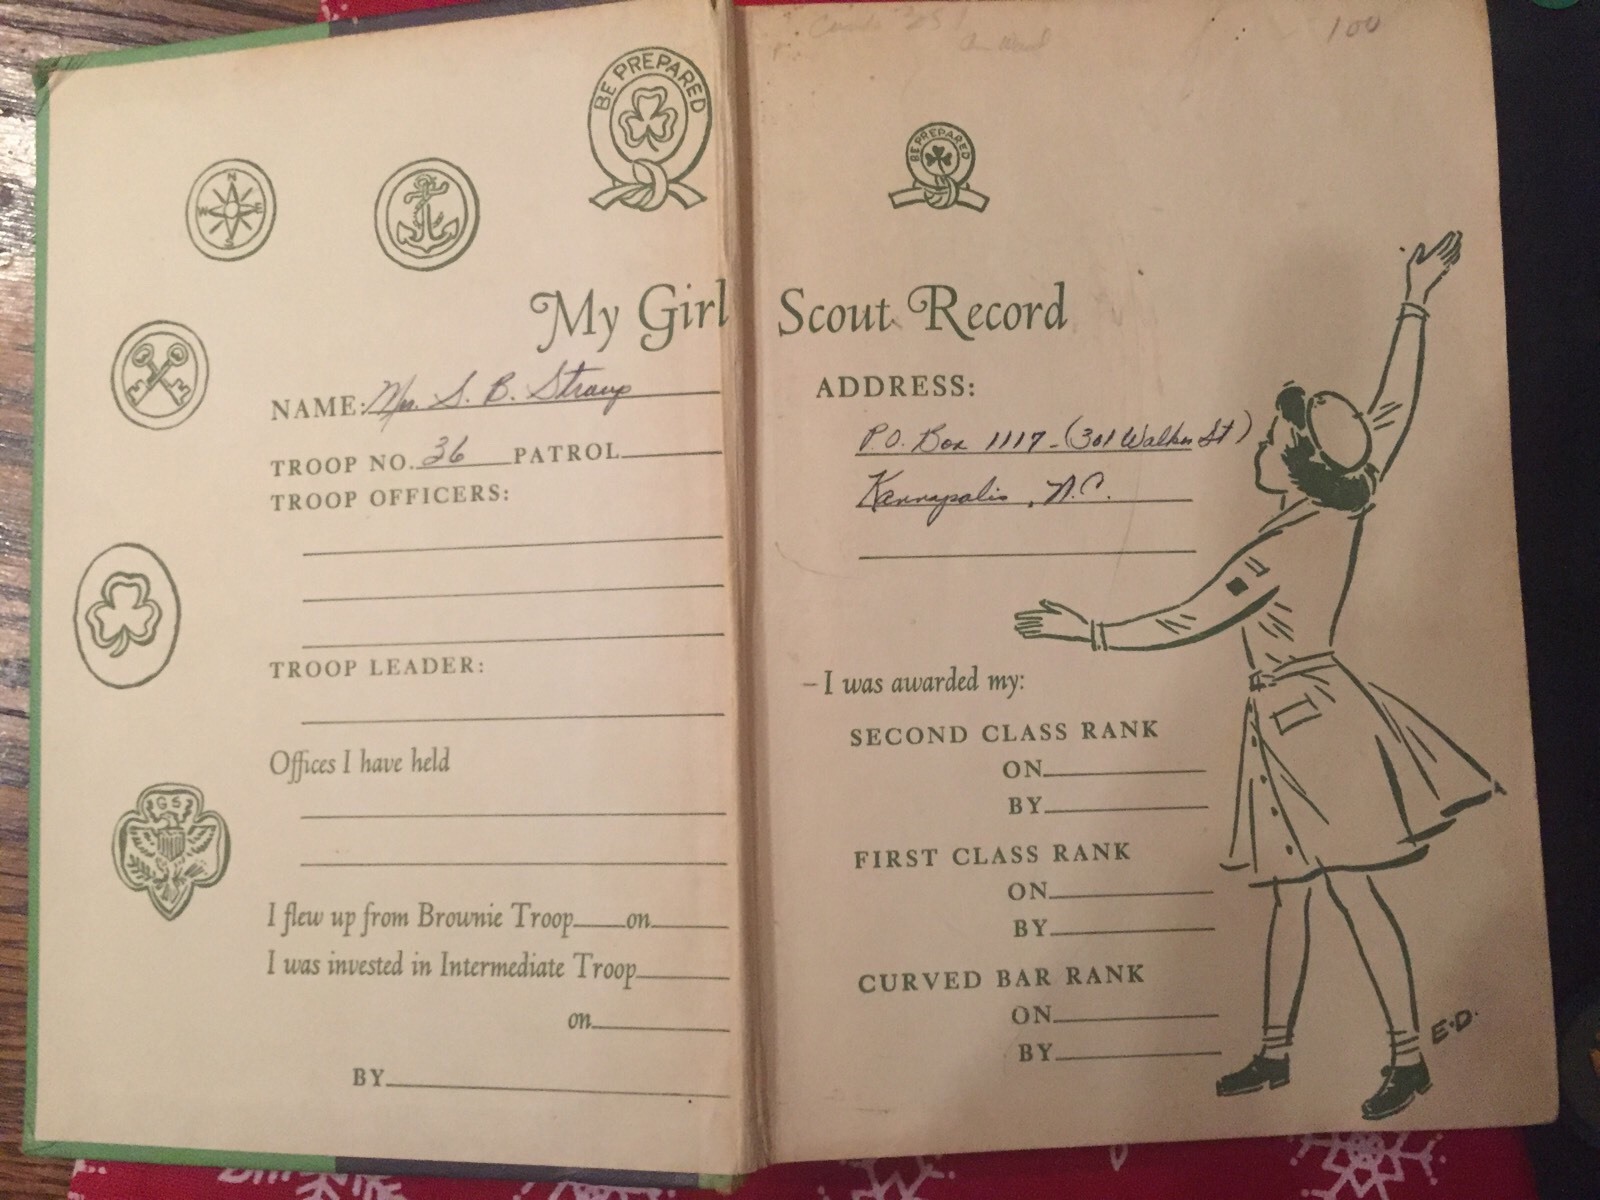 BE PREPARED
N
W E
S
My Girl Scout Record
NAME: Mrs. S. B. Stroup
TROOP NO. 36 PATROL
TROOP OFFICERS:
TROOP LEADER:
Offices I have held
GS
I flew up from Brownie Troop on
I was invested in Intermediate Troop
on
BY
100
BE PREPARED
ADDRESS:
P.O. Box 1117 - (301 Walker St)
Kannapolis, N.C.
– I was awarded my:
SECOND CLASS RANK
ON
BY
FIRST CLASS RANK
ON
BY
CURVED BAR RANK
ON
BY
E.D.